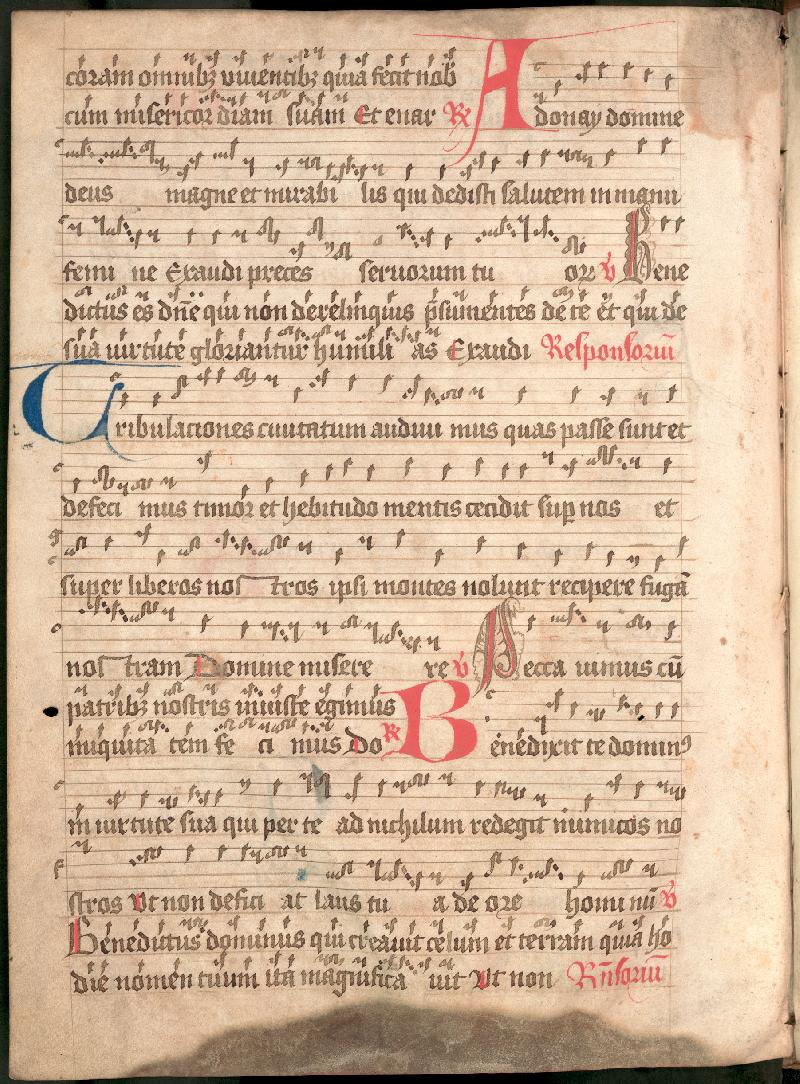 coram omnibꝫ viuentibꝫ quia fecit nob
cum misericor diam suam Et enar R Adonay domine
deus magne et mirabi lis qui dedisti salutem in manu
femi ne Exaudi preces seruorum tu orꝫ v Bene
dictus es dn̄e qui non derelinquis p̄sumentes de te et qui de
sua uirtute gloriantur humili as Exaudi Responsoriū
Tribulaciones ciuitatum audiui mus quas passe sunt et
defeci mus timor et hebitudo mentis cecidit sup nos et
super liberos nos tros ipsi montes nolunt recipere fugā
nos tram Domine misere re v Pecca uimus cū
patribꝫ nostris iniuste egimus
iniquita tem fe ci mus Do R Benedixit te dominꝰ
in uirtute sua qui per te ad nichilum redegit inimicos no
stros Ut non defici at laus tu a de ore homi nū v
Benedictus dominus qui creauit celum et terram quia ho
die nomen tuum ita magnifica uit Ut non Rn̄soriū